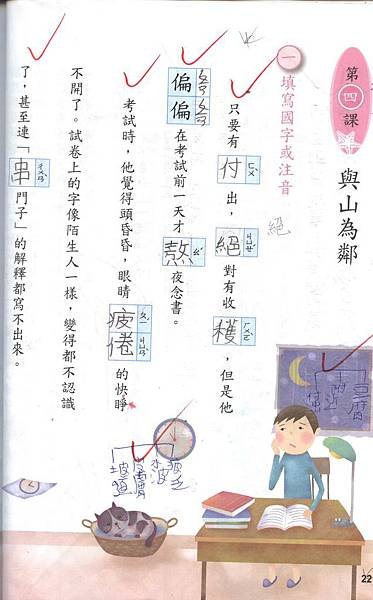 第四課
與山為鄰
一 填寫國字或注音
只要有付ㄈㄨˋ出，絕ㄐㄩㄝˊ對有收穫ㄏㄨㄛˋ，但是他
偏ㄆㄧㄢ偏ㄆㄧㄢ在考試前一天才熬ㄠˊ夜念書。
考試時，他覺得頭昏昏，眼睛疲ㄆㄧˊ倦ㄐㄩㄢˋ的快睜
不開了。試卷上的字像陌生人一樣，變得都不認識
了，甚至連「串ㄔㄨㄢˋ門子」的解釋都寫不出來。
絕
22